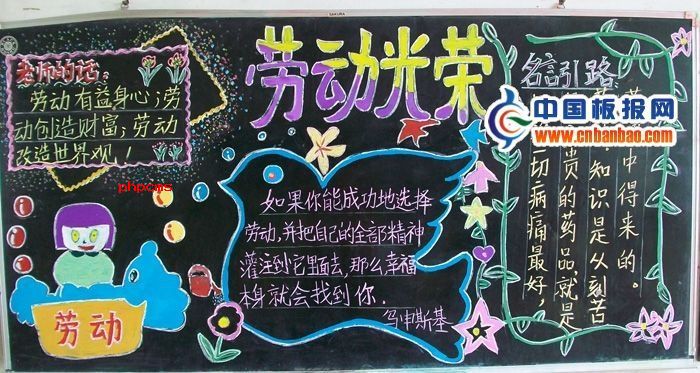 SAKURA
劳动光荣
老师的话:
劳动有益身心;劳
动创造财富;劳动
改造世界观!
phpcms
如果你能成功地选择
劳动,并把自己的全部精神
灌注到它里面去,那么幸福
本身就会找到你.
乌申斯基
劳动
名言引路
切病痛最好,
贵的药品,就是
知识是从刻苦
中得来的。
中国板报网
www.cnbanbao.com